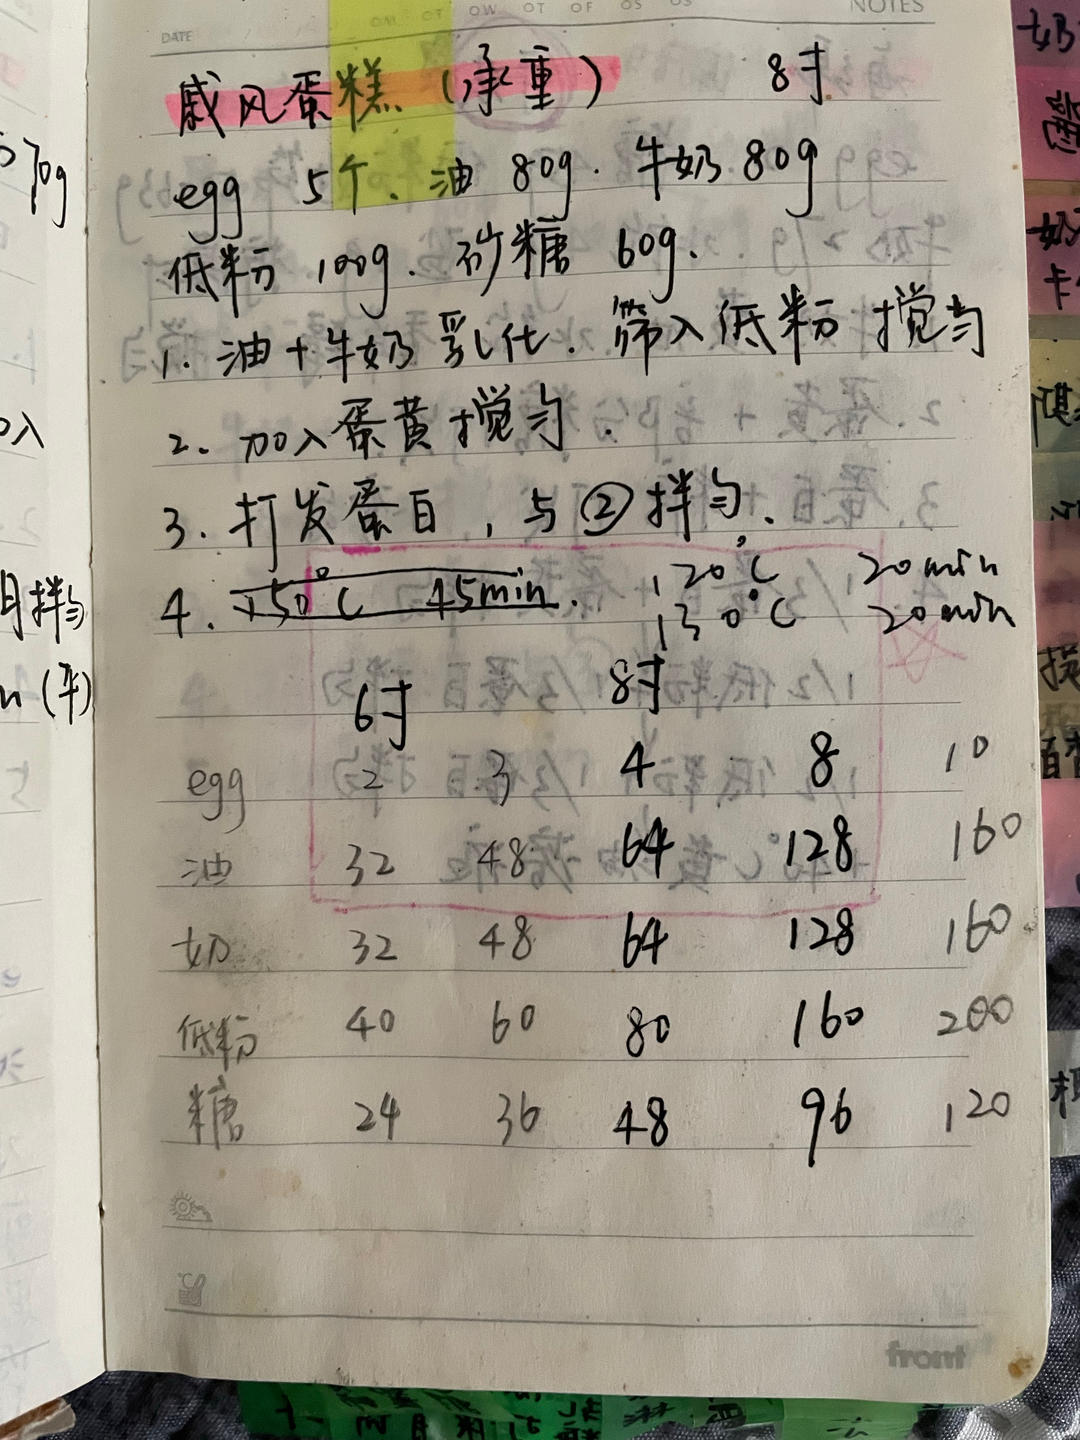 NOTES
DATE
戚风蛋糕（承重） 8寸
egg 5个. 油 80g. 牛奶 80g
低粉 100g. 砂糖 60g.
1. 油+牛奶乳化. 筛入低粉搅匀
2. 加入蛋黄搅匀.
3. 打发蛋白, 与②拌匀.
4. 150°C 45min. 120°C 20min
130°C 20min
6寸 8寸
egg 2 3 4 8 10
油 32 48 64 128 160
奶 32 48 64 128 160
低粉 40 60 80 160 200
糖 24 36 48 96 120
front
70g
入
拌匀
(平)